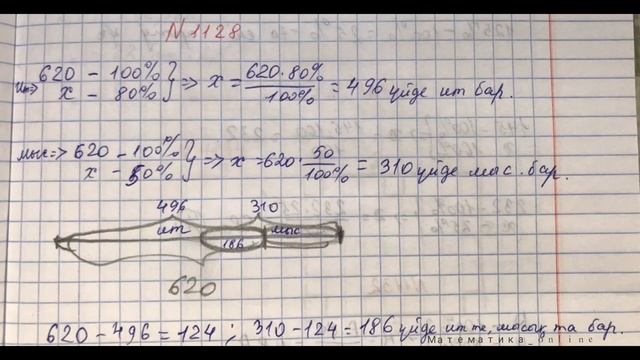 N 1128
620 – 100%
ит=> x – 80% } => x = 620·80% / 100% = 496 үйде ит бар.
мыс=> 620 – 100%
x – 50% } => x = 620 · 50 / 100% = 310 үйде мыс. бар.
496 310
ит 186 мыс
620
620 – 496 = 124 ; 310 – 124 = 186 үйде ит те, мысық та бар.
Математика_online